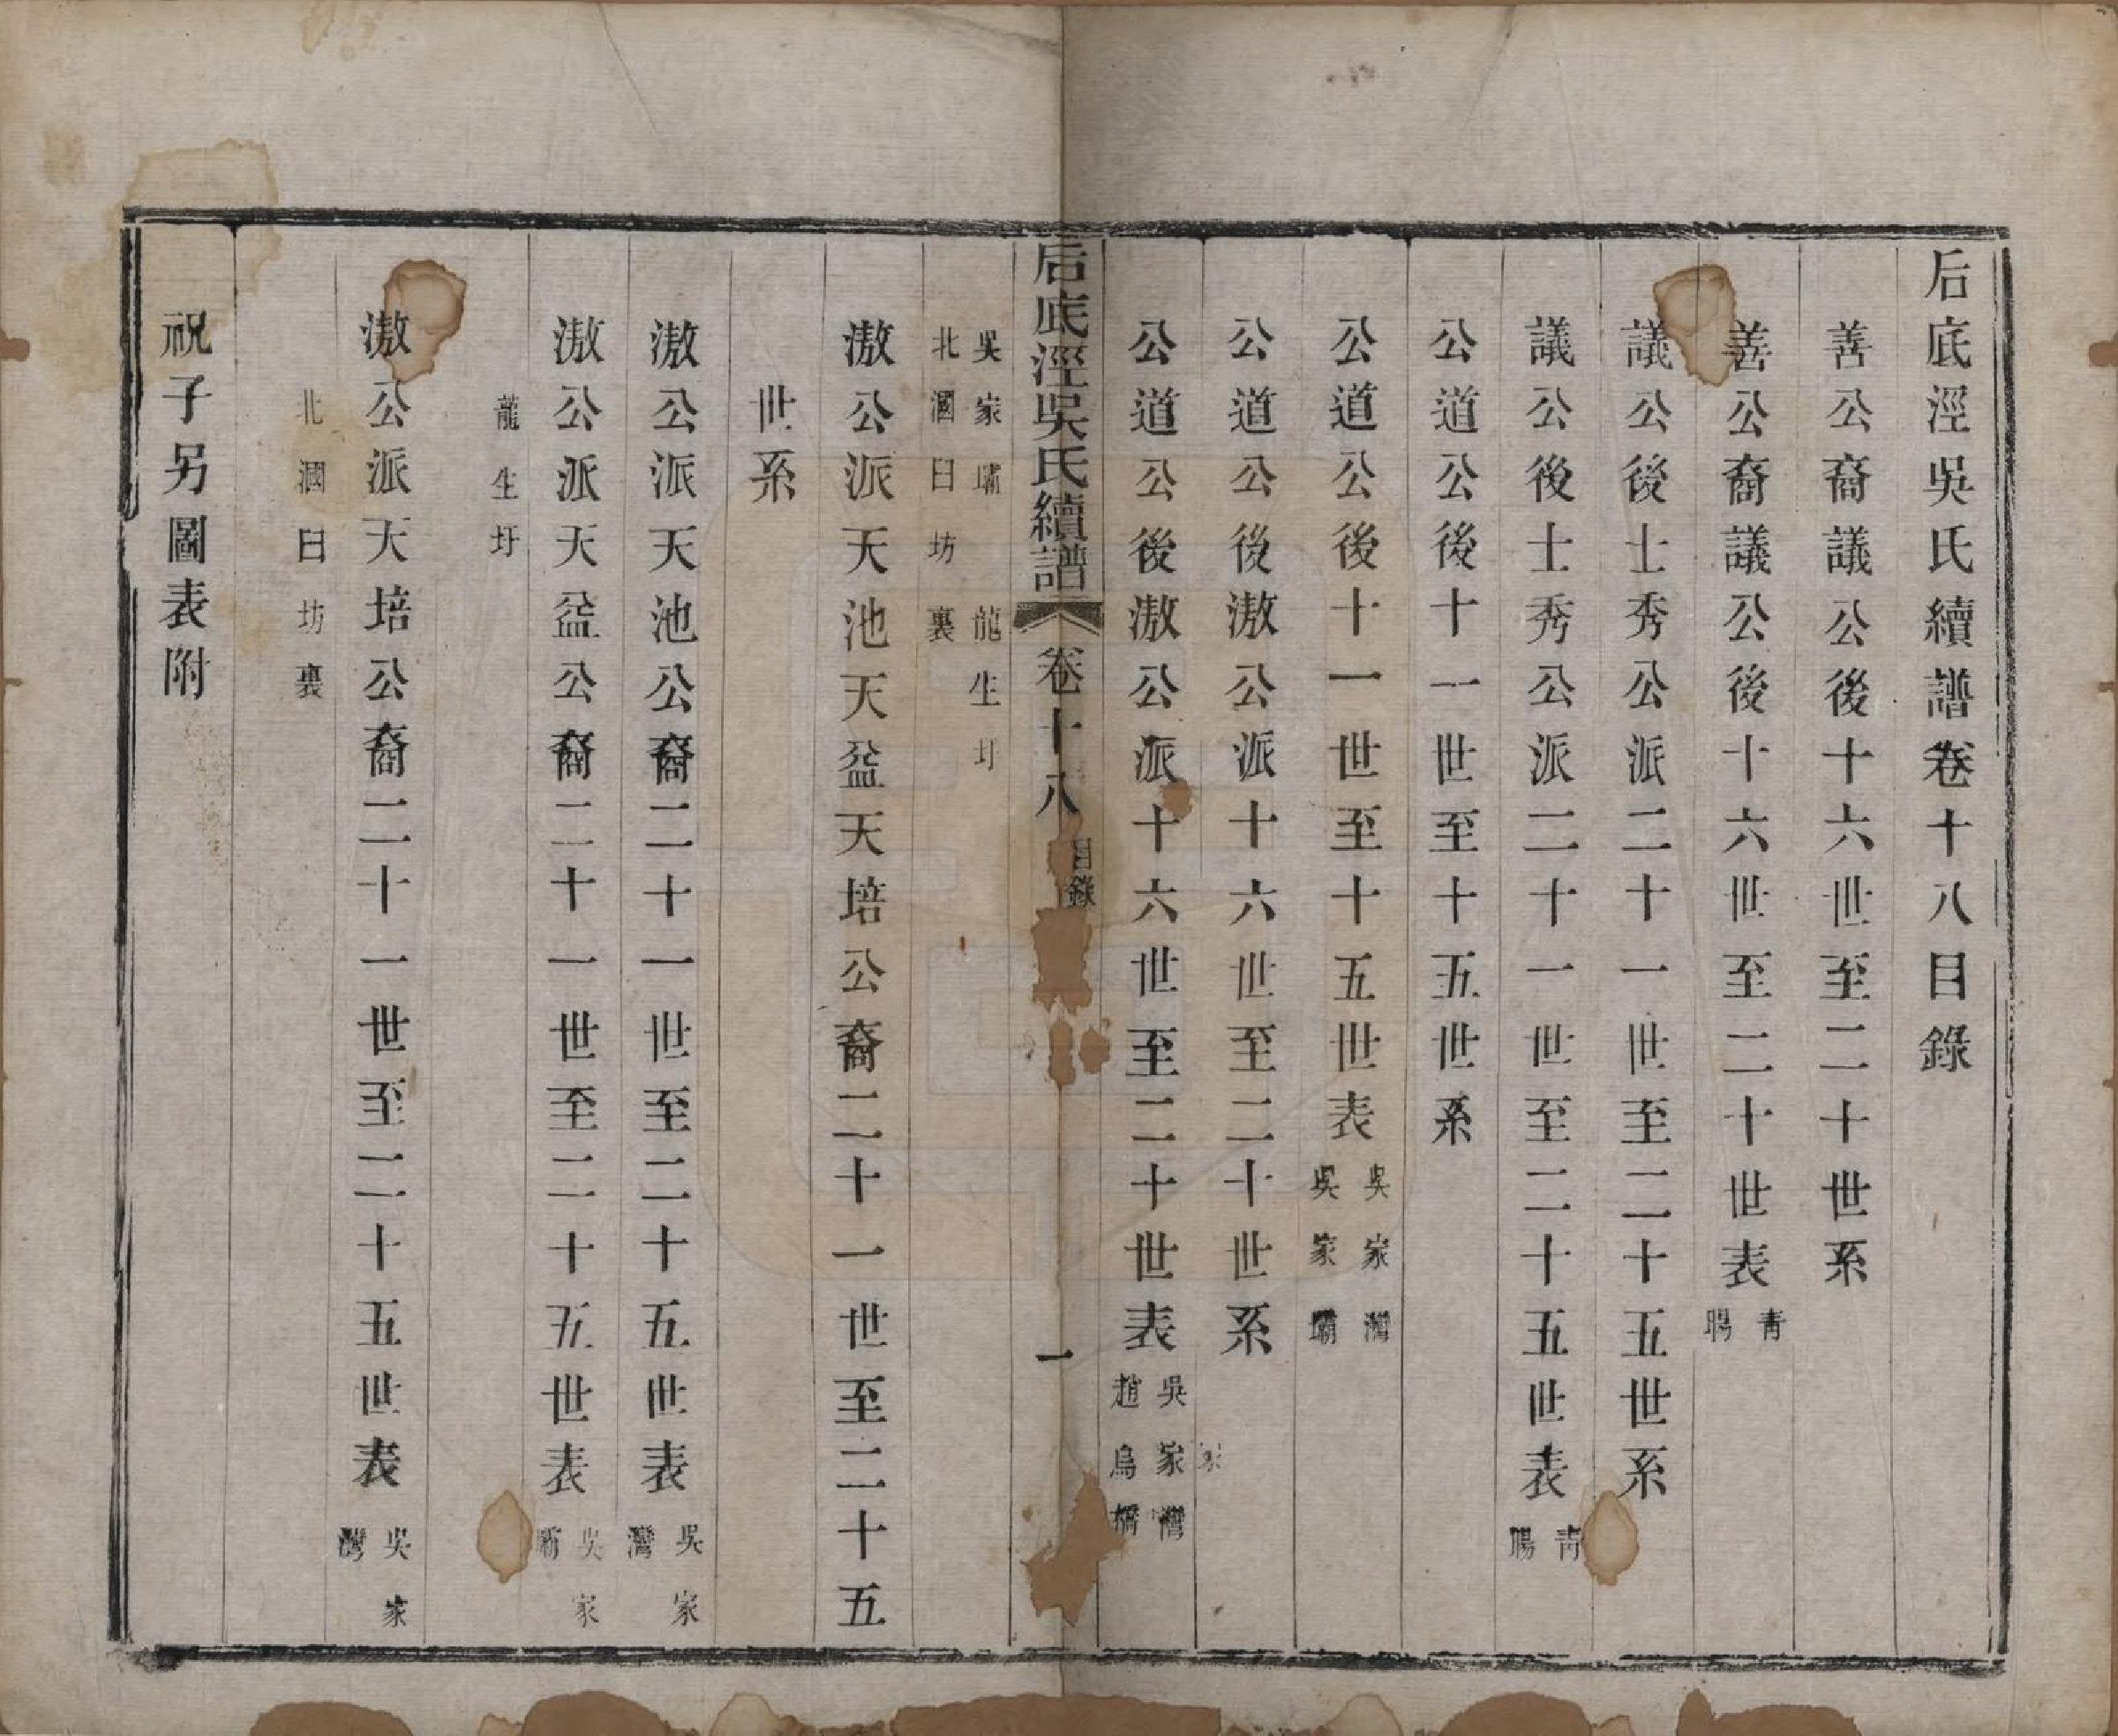 后底涇吳氏續譜卷十八目錄
善公裔議公後十六世至二十世系
善公裔議公後十六世至二十世表 青暘
議公後士秀公派二十一世至二十五世系
議公後士秀公派二十一世至二十五世表 青暘
公道公後十一世至十五世系
公道公後十一世至十五世表 吳家灣 吳家壩
公道公後滶公派十六世至二十世系
公道公後滶公派十六世至二十世表 吳家灣 趙烏橋
后底涇吳氏續譜 卷十八 目錄 一
吳家壩 龍生圩
北漍日坊裏
滶公派天池天盈天培公裔二十一世至二十五
世系
滶公派天池公裔二十一世至二十五世表 吳家灣
滶公派天盈公裔二十一世至二十五世表 吳家壩
龍生圩
滶公派天培公裔二十一世至二十五世表 吳家灣
北漍日坊裏
祝子另圖表附